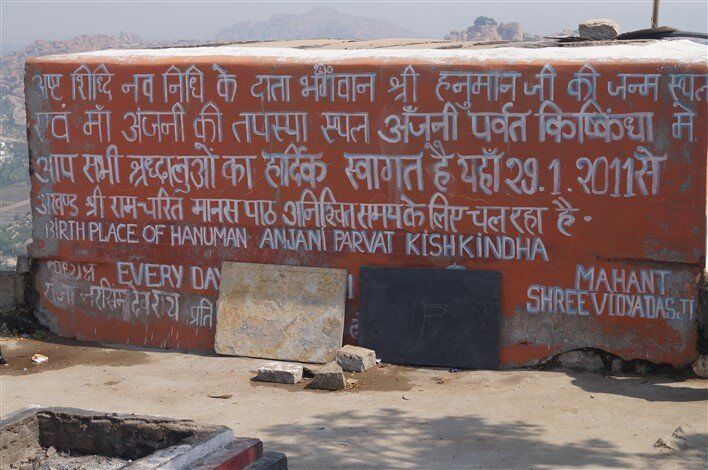 अष्ट शिध्दि नव निधि के दाता भगवान श्री हनुमान जी की जन्म स्थल
एवं माँ अंजनी की तपस्या स्थल अँजनी पर्वत किष्किंधा में
आप सभी श्रध्दालुओं का हार्दिक स्वागत है यहाँ 29.1.2011 से
अखण्ड श्री राम-चरित मानस पाठ अनिश्चित समय के लिए चल रहा है.
BIRTH PLACE OF HANUMAN ANJANI PARVAT KISHKINDHA
EVERY DAY
प्रति
MAHANT
SHREE VIDYADAS JI